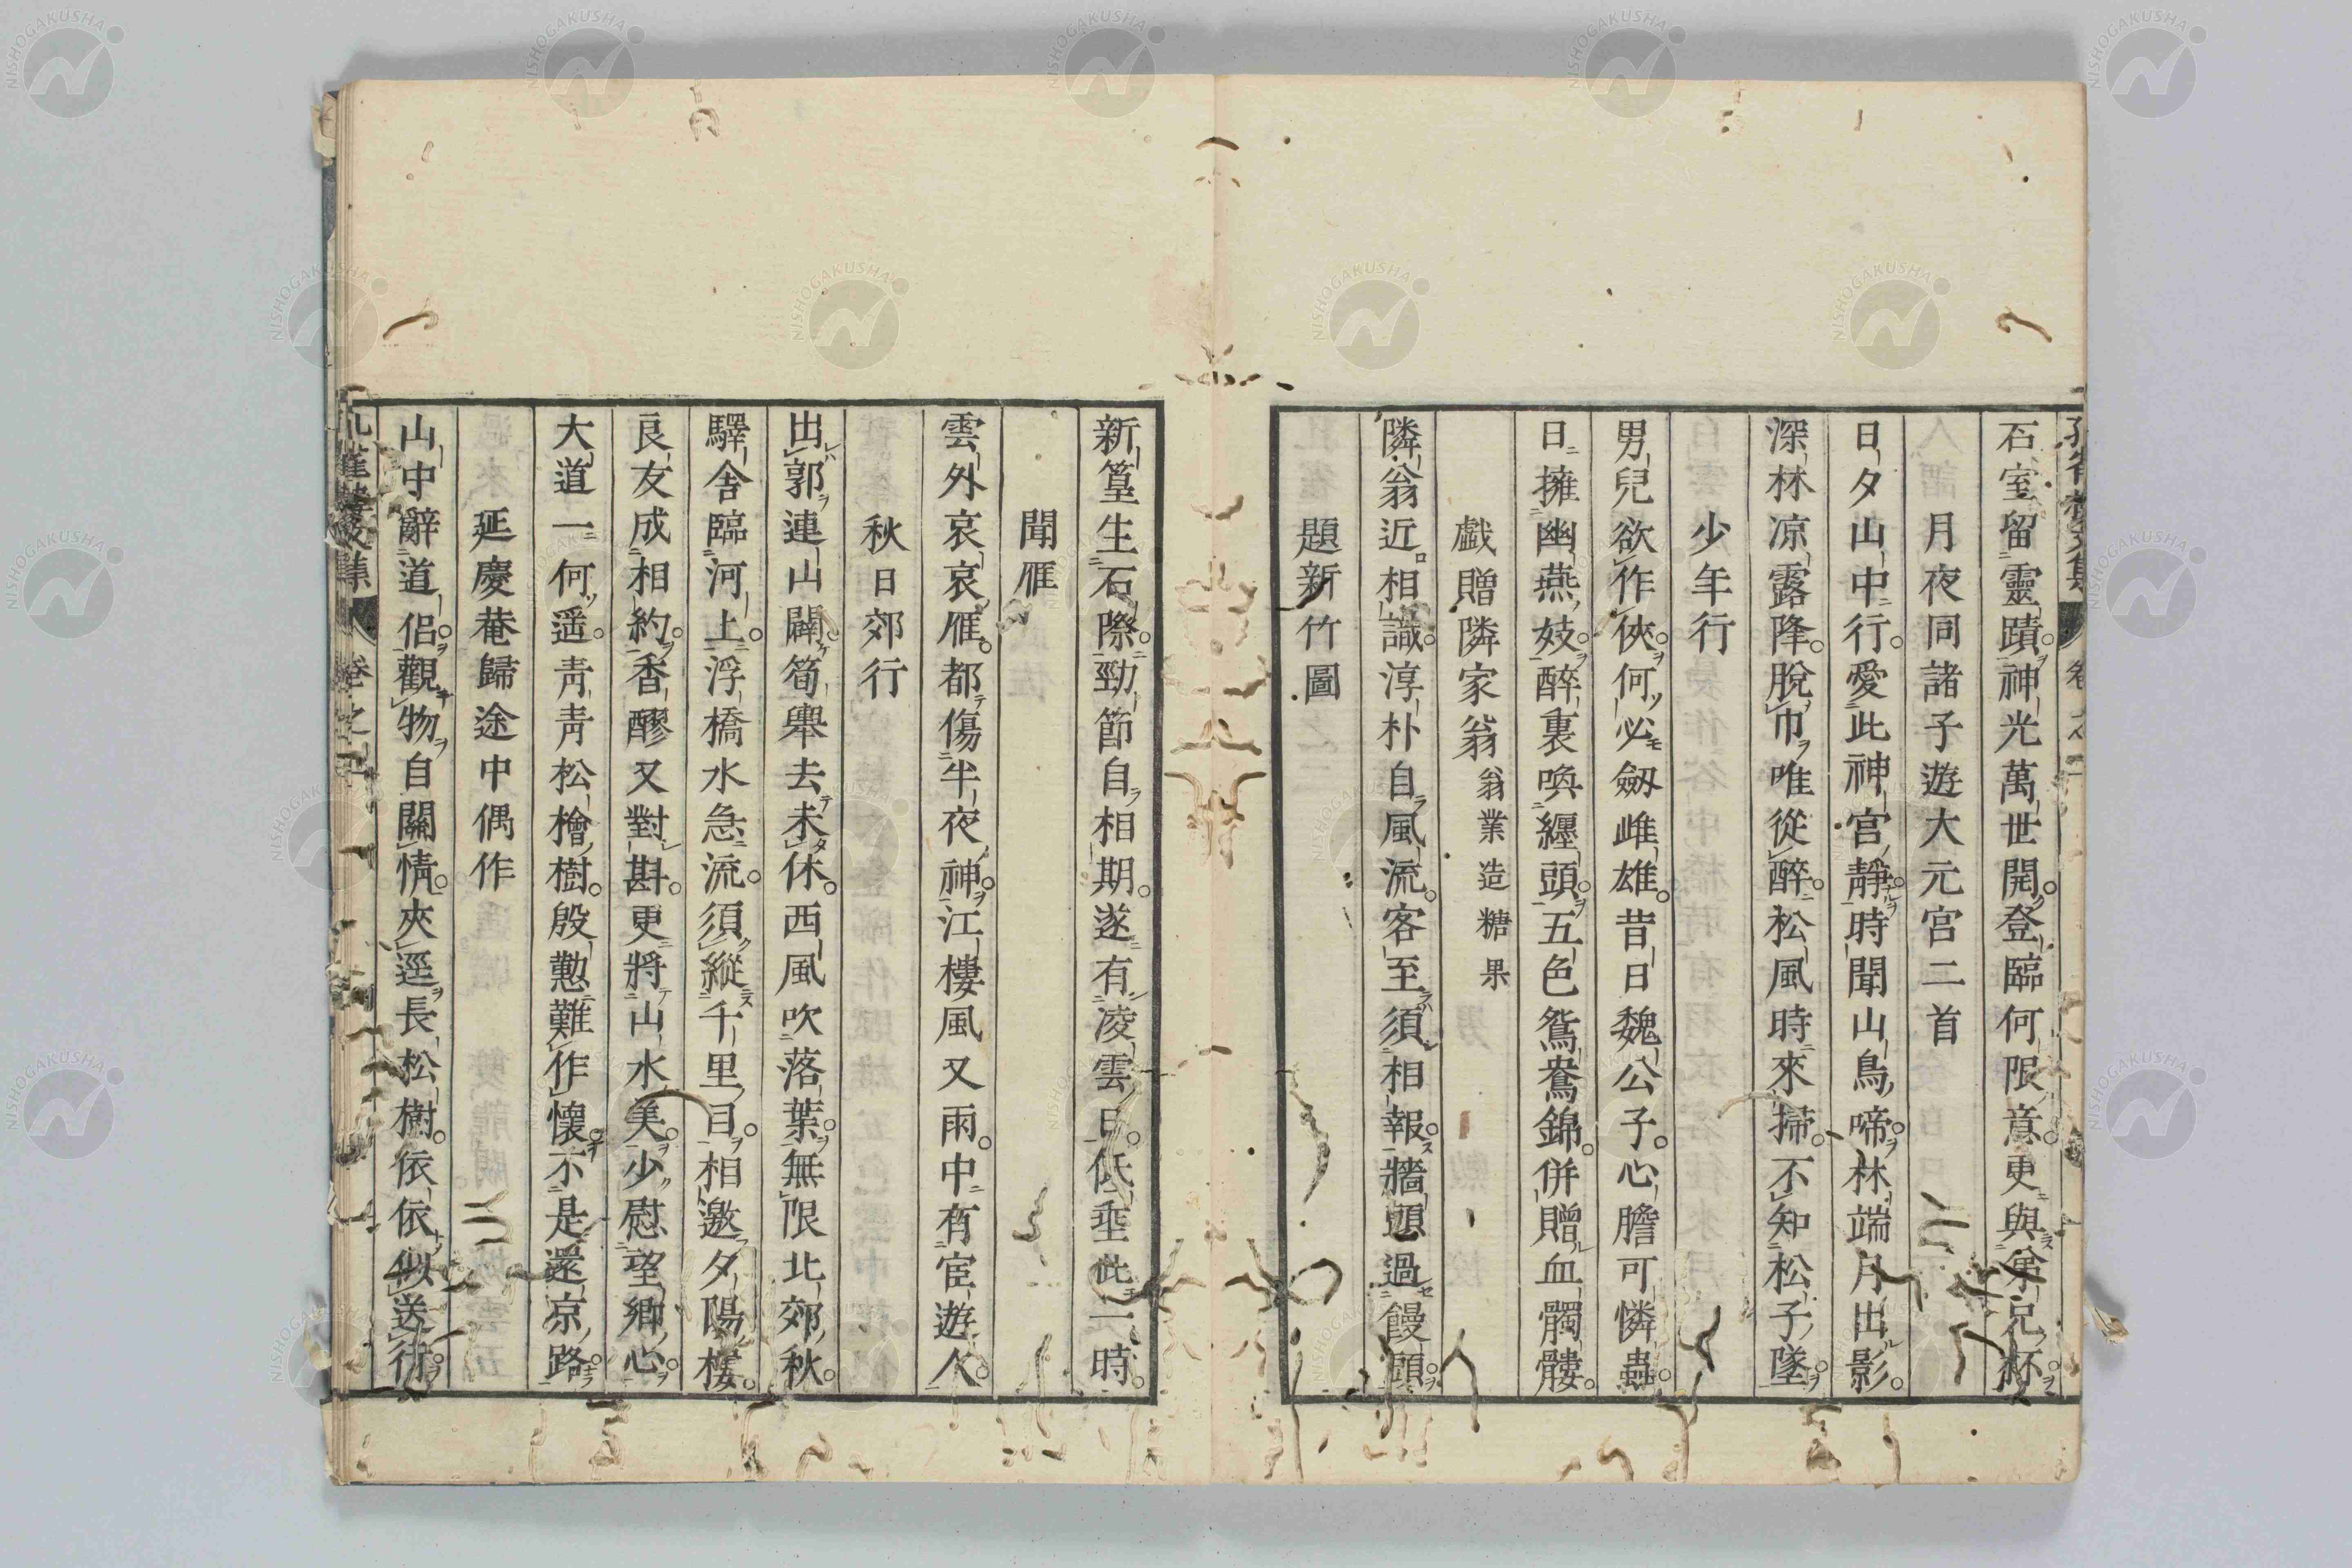 石室留靈蹟神光萬世開登臨何限意更與弟兄杯
月夜同諸子遊大元宮二首
日夕山中行愛此神宮靜時聞山鳥啼林端月出影
深林凉露降脫巾唯從醉松風時來掃不知松子墜
少年行
男兒欲作俠何必劒雌雄昔日魏公子心膽可憐蟲
日擁幽燕妓醉裏喚纏頭五色鴛鴦錦併贈血髑髏
戲贈隣家翁翁業造糖果
隣翁近相識淳朴自風流客至須相報牆頭過饅頭
題新竹圖
新篁生石際勁節自相期遂有凌雲日低垂此一時
聞雁
雲外哀哀雁都傷半夜神江樓風又雨中有宦遊人
秋日郊行
出郭連山闢筍輿去未休西風吹落葉無限北郊秋
驛舍臨河上浮橋水急流須縱千里目相邀夕陽樓
良友成相約香醪又對斟更將山水美少慰望鄉心
大道一何遥青青松檜樹殷懃難作懷不是還京路
延慶菴歸途中偶作
山中辭道侶觀物自關情夾逕長松樹依依似送行
NISHOGAKUSHA